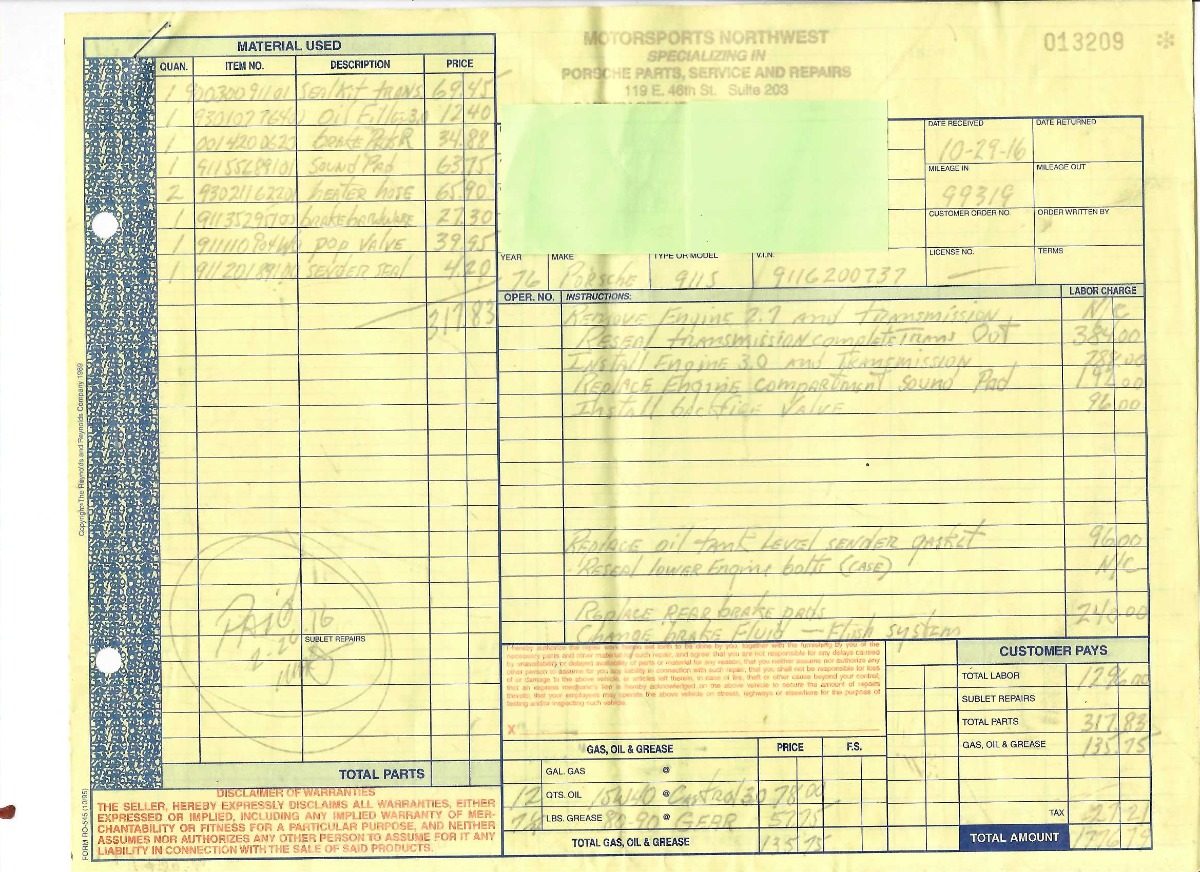 MATERIAL USED
QUAN. ITEM NO. DESCRIPTION PRICE
1 Seal Kit trans 69.45
1 Oil Filter 3.0 12.40
1 brake Pads R 34.88
1 Sound Pad 63.75
2 93021162201 heater hose 65.90
1 brake hardware 27.30
1 pop valve 39.95
1 sender seal 4.20
317.83
Paid
SUBLET REPAIRS
TOTAL PARTS
Copyright The Reynolds and Reynolds Company 1989
FORM RO-545 (10/95)
DISCLAIMER OF WARRANTIES
THE SELLER, HEREBY EXPRESSLY DISCLAIMS ALL WARRANTIES, EITHER
EXPRESSED OR IMPLIED, INCLUDING ANY IMPLIED WARRANTY OF MER-
CHANTABILITY OR FITNESS FOR A PARTICULAR PURPOSE, AND NEITHER
ASSUMES NOR AUTHORIZES ANY OTHER PERSON TO ASSUME FOR IT ANY
LIABILITY IN CONNECTION WITH THE SALE OF SAID PRODUCTS.
MOTORSPORTS NORTHWEST
SPECIALIZING IN
PORSCHE PARTS, SERVICE AND REPAIRS
119 E. 46th St. Suite 203
013209
DATE RECEIVED DATE RETURNED
10-29-16
MILEAGE IN MILEAGE OUT
99319
CUSTOMER ORDER NO. ORDER WRITTEN BY
LICENSE NO. TERMS
YEAR MAKE TYPE OR MODEL V.I.N.
76 Porsche 911S 9116200737
OPER. NO. INSTRUCTIONS: LABOR CHARGE
Remove Engine 2.7 and Transmission N/C
Reseal transmission complete Trans Out 384.00
Install Engine 3.0 and Transmission 288.00
Replace Engine compartment Sound Pad 192.00
Install backfire valve 96.00
Replace oil tank level sender gasket 96.00
Reseal lower Engine bolts (case) N/C
Replace rear brake pads 240.00
Change brake Fluid — Flush system
I hereby authorize the repair work herein set forth to be done by you, together with the furnishing by you of the
necessary parts and other material for such repair, and agree; that you are not responsible for any delays caused
by unavailability or delayed availability of parts or material for any reason; that you neither assume nor authorize any
other person to assume for you any liability in connection with such repair; that you shall not be responsible for loss
of or damage to the above vehicle, or articles left therein, in case of fire, theft or other cause beyond your control;
that an express mechanic's lien is hereby acknowledged on the above vehicle to secure the amount of repairs
thereto; that your employees may operate the above vehicle on streets, highways or elsewhere for the purpose of
testing and/or inspecting such vehicle.
X
GAS, OIL & GREASE PRICE F.S.
GAL. GAS @
12 QTS. OIL 15W40 @ Castrol 30 78.00
LBS. GREASE @ Gear 57.75
TOTAL GAS, OIL & GREASE 135.75
CUSTOMER PAYS
TOTAL LABOR 1296.00
SUBLET REPAIRS
TOTAL PARTS 317.83
GAS, OIL & GREASE 135.75
TAX 27.21
TOTAL AMOUNT 1776.79